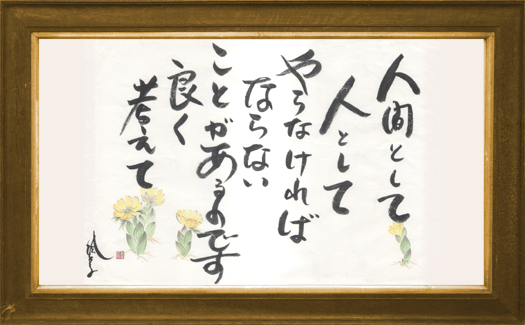 人間として
人として
やらなければ
ならない
ことがあるのです
良く
考えて